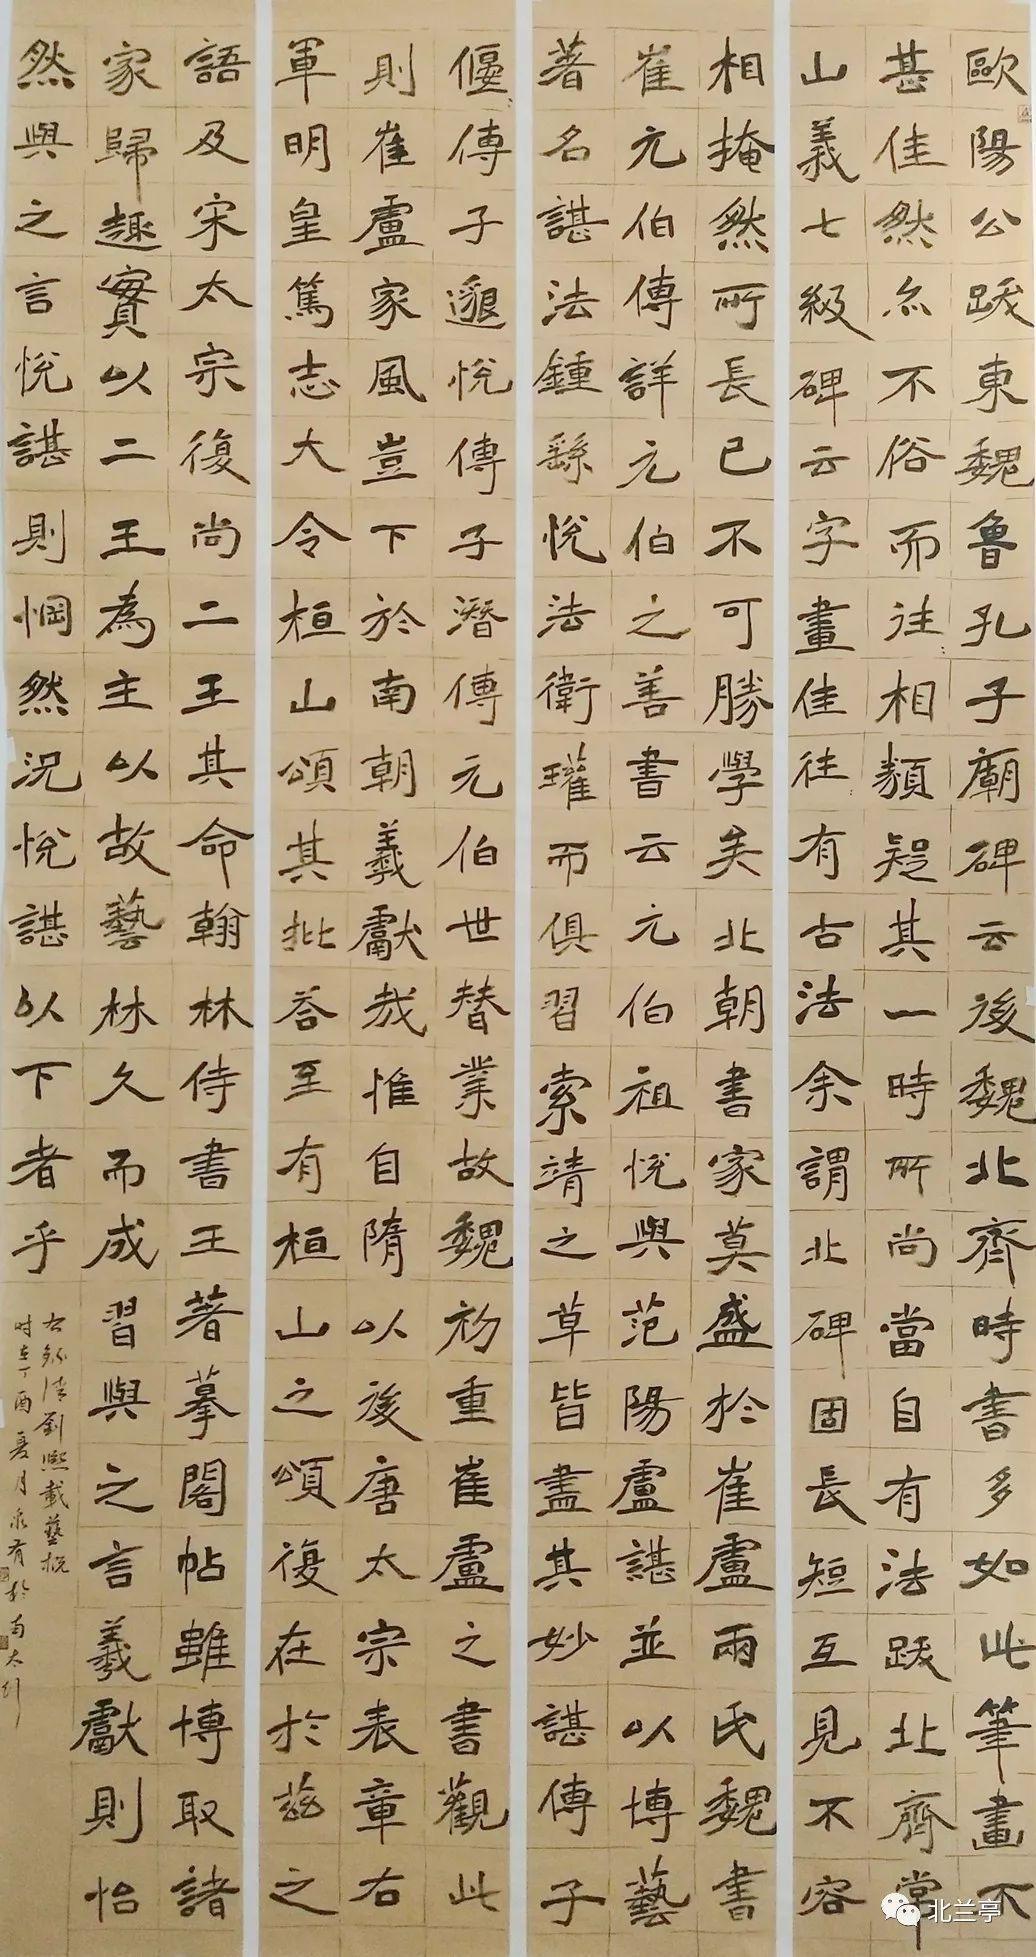 歐陽公跋東魏魯孔子廟碑云後魏北齊時書多如此筆畫不
甚佳然亦不俗而往相類疑其一時所尚當自有法跋北齊常
山義七級碑云字畫佳往有古法余謂北碑固長短互見不容
相掩然所長已不可勝學矣北朝書家莫盛於崔盧兩氏魏書
崔元伯傳詳元伯之善書云元伯祖悅與范陽盧諶並以博藝
著名諶法鍾繇悅法衛瓘而俱習索靖之草皆盡其妙諶傳子
偃傳子邈悅傳子潛傳元伯世替業故魏初重崔盧之書觀此
則崔盧家風豈下於南朝羲獻哉惟自隋以後唐太宗表章右
軍明皇篤志大令桓山頌其批答至有桓山之頌復在於茲之
語及宋太宗復尚二王其命翰林侍書王著摹閣帖雖博取諸
家歸趣實以二王為主以故藝林久而成習與之言羲獻則怡
然與之言悅諶則惘然況悅諶以下者乎
右錄清劉熙載藝概
时在丁酉夏月永有於南太行
北兰亭